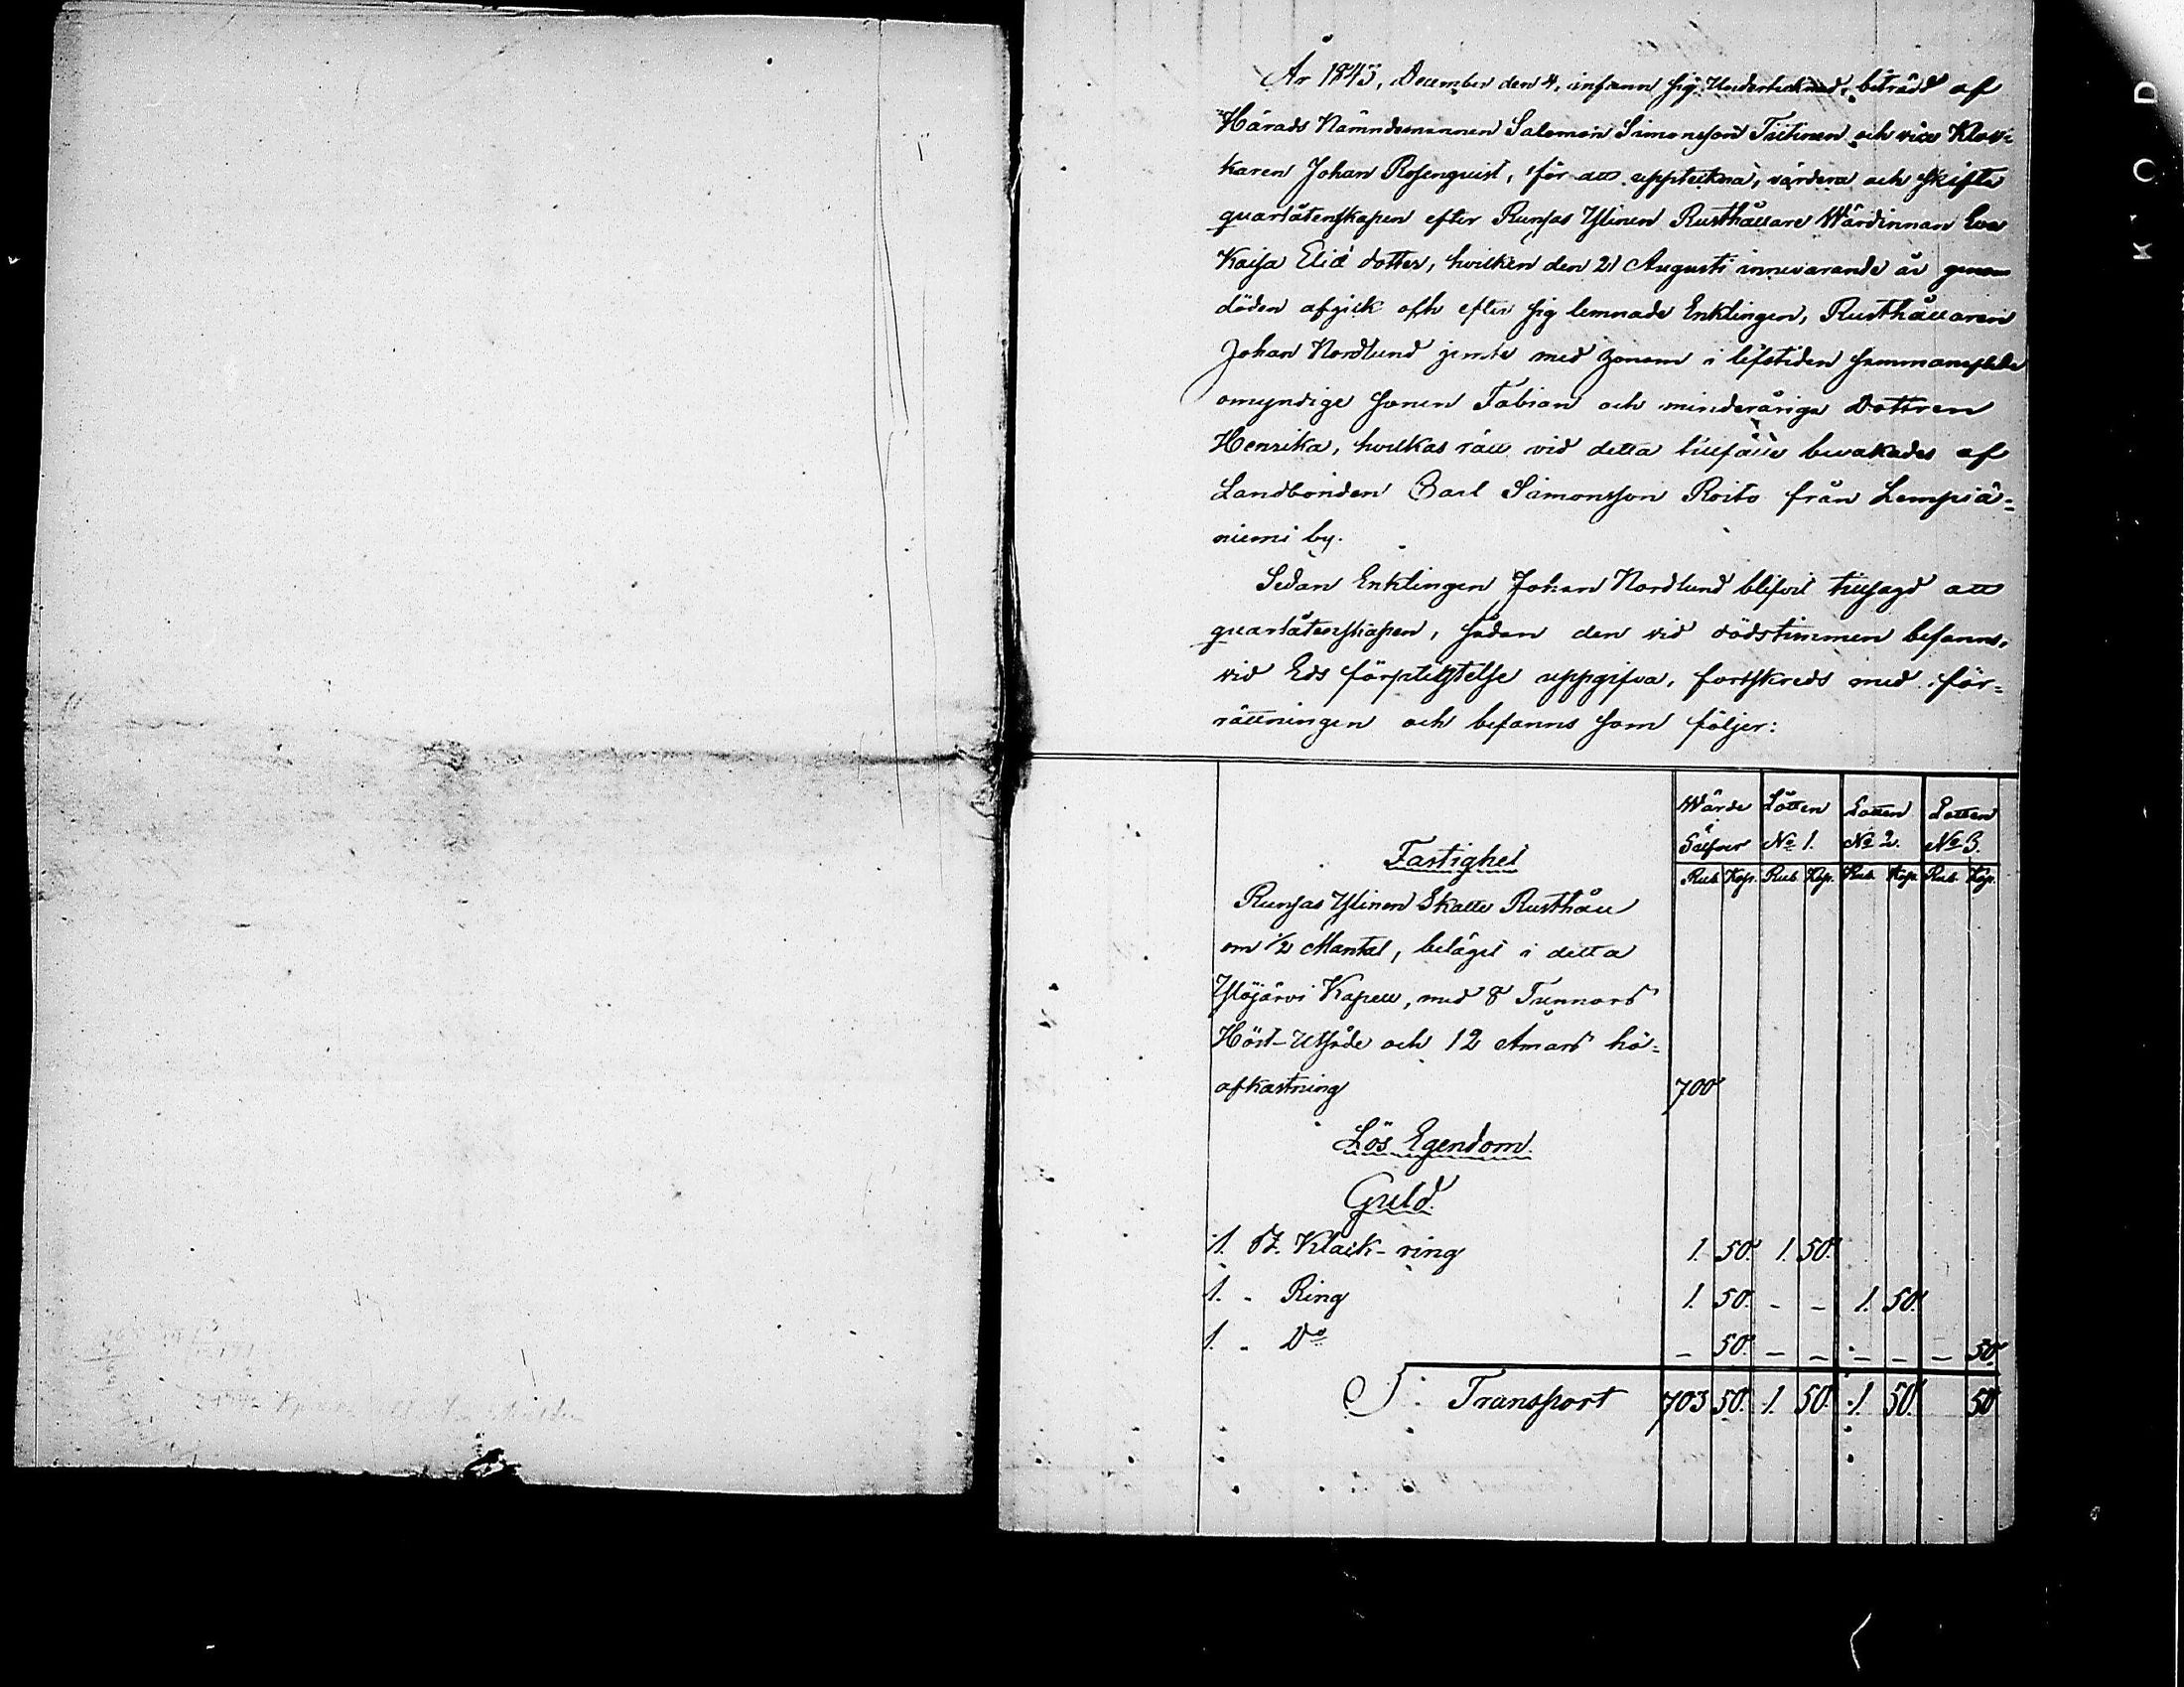 År 1843, December den 4, infann sig Undertecknad, biträdd af
Härads Nämndemannen Salomon Simonsson Tiitinen och vice Kloc-
karen Johan Rosenquist, för att uppteckna, värdera och skifta
quarlåtenskapen efter Runsas Ylinen Rusthållare Wärdinnan Eva
Kaisa Elia dotter, hvilken den 21 Augusti innevarande år genom
döden afgick och efter sig lemnade Enklingen, Rusthållaren
Johan Nordlund jemte med honom i lifstiden sammanaflade
omyndige sonen Fabian och minderåriga Dottren
Henrika, hvilkas rätt vid detta tillfälle bevakades af
Landbonden Carl Simonsson Roito från Lempiä-
niemi by.
Sedan Enklingen Johan Nordlund blifvit tillsagd att
quarlåtenskapen, sådan den vid dödstimmen befanns,
vid Eds förpligtelse uppgifva, fortskreds med för-
rättningen och befanns som följer:
Wärde i Silfver Lotten No 1. Lotten No 2. Lotten No 3.
Rub. Kop. Rub. Kop. Rub. Kop. Rub. Kop.
Fastighet
Runsas Ylinen Skatte Rusthåll
om 1/2 Mantal, beläget i detta
Ylöjärvi Kapell, med 8 Tunnors
Höst-Utsäde och 12 Åmars hö-
afkastning 700
Lös Egendom.
Guld.
1. St. Klack-ring 1. 50. 1. 50.
1. " Ring 1. 50. - - 1. 50.
1. " Do - 50. - - - - - 50.
Transport 703 50. 1. 50. 1. 50. 50